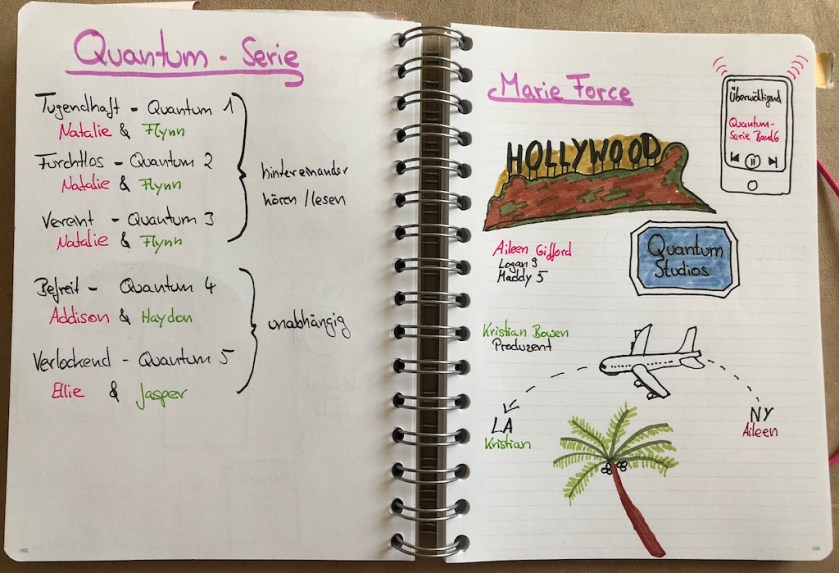 Quantum - Serie
Tugendhaft - Quantum 1
Natalie & Flynn
Furchtlos - Quantum 2
Natalie & Flynn
Vereint - Quantum 3
Natalie & Flynn
hintereinander
hören / lesen
Befreit - Quantum 4
Addison & Haydon
Verlockend - Quantum 5
Ellie & Jasper
unabhängig
Marie Force
Überwältigend
Quantum-
Serie Band 6
HOLLYWOOD
Aileen Gifford
Logan 9
Maddy 5
Quantum
Studios
Kristian Bowen
Produzent
LA
Kristian
NY
Aileen